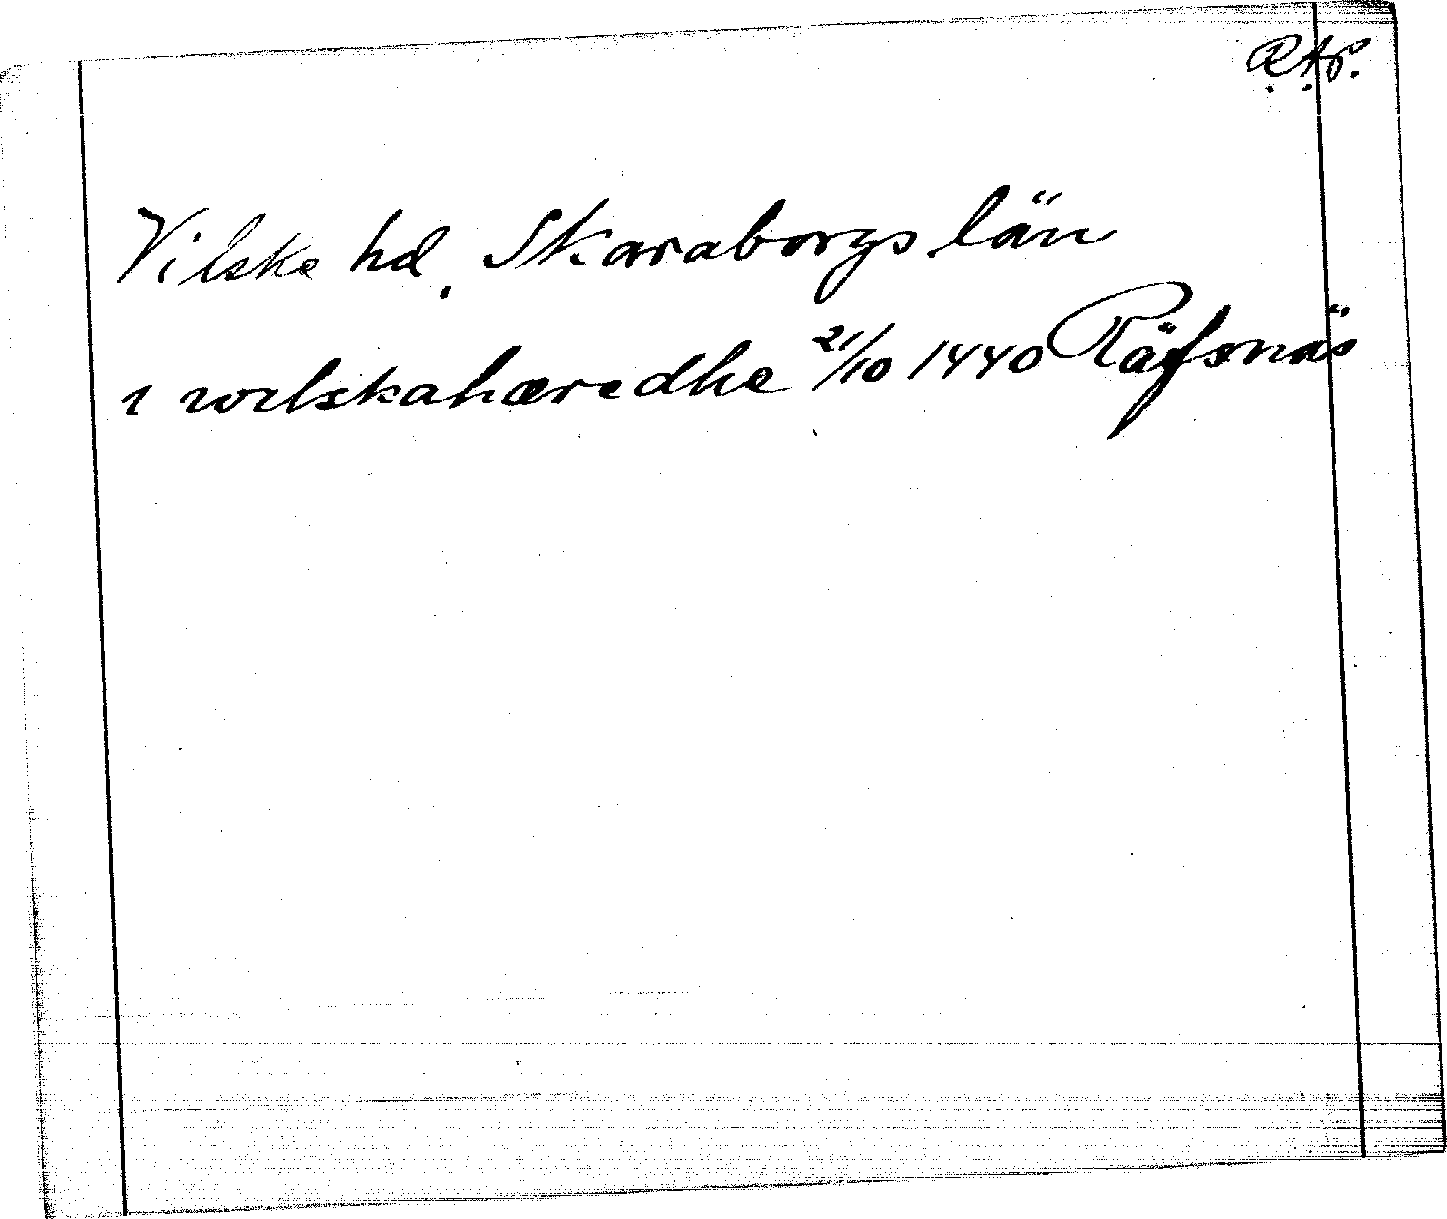 R.A.P.
Vilske hd. Skaraborgs län
i wilskahæredhe 21/10 1440 Räfsnäs